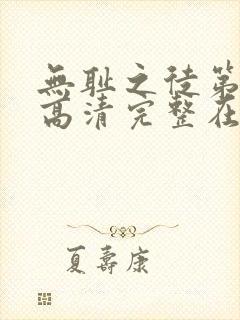 無耻之徒第
高清完整在
夏壽康